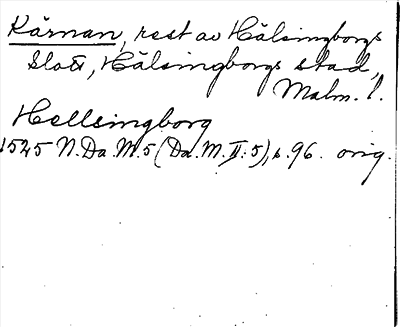 Kärnan, rest av Hälsingborgs
slott, Hälsingborgs stad,
Malm. l.
Hellsingborg
1545 N.Da.M.5 (Da.M.II:5), s.96. orig.